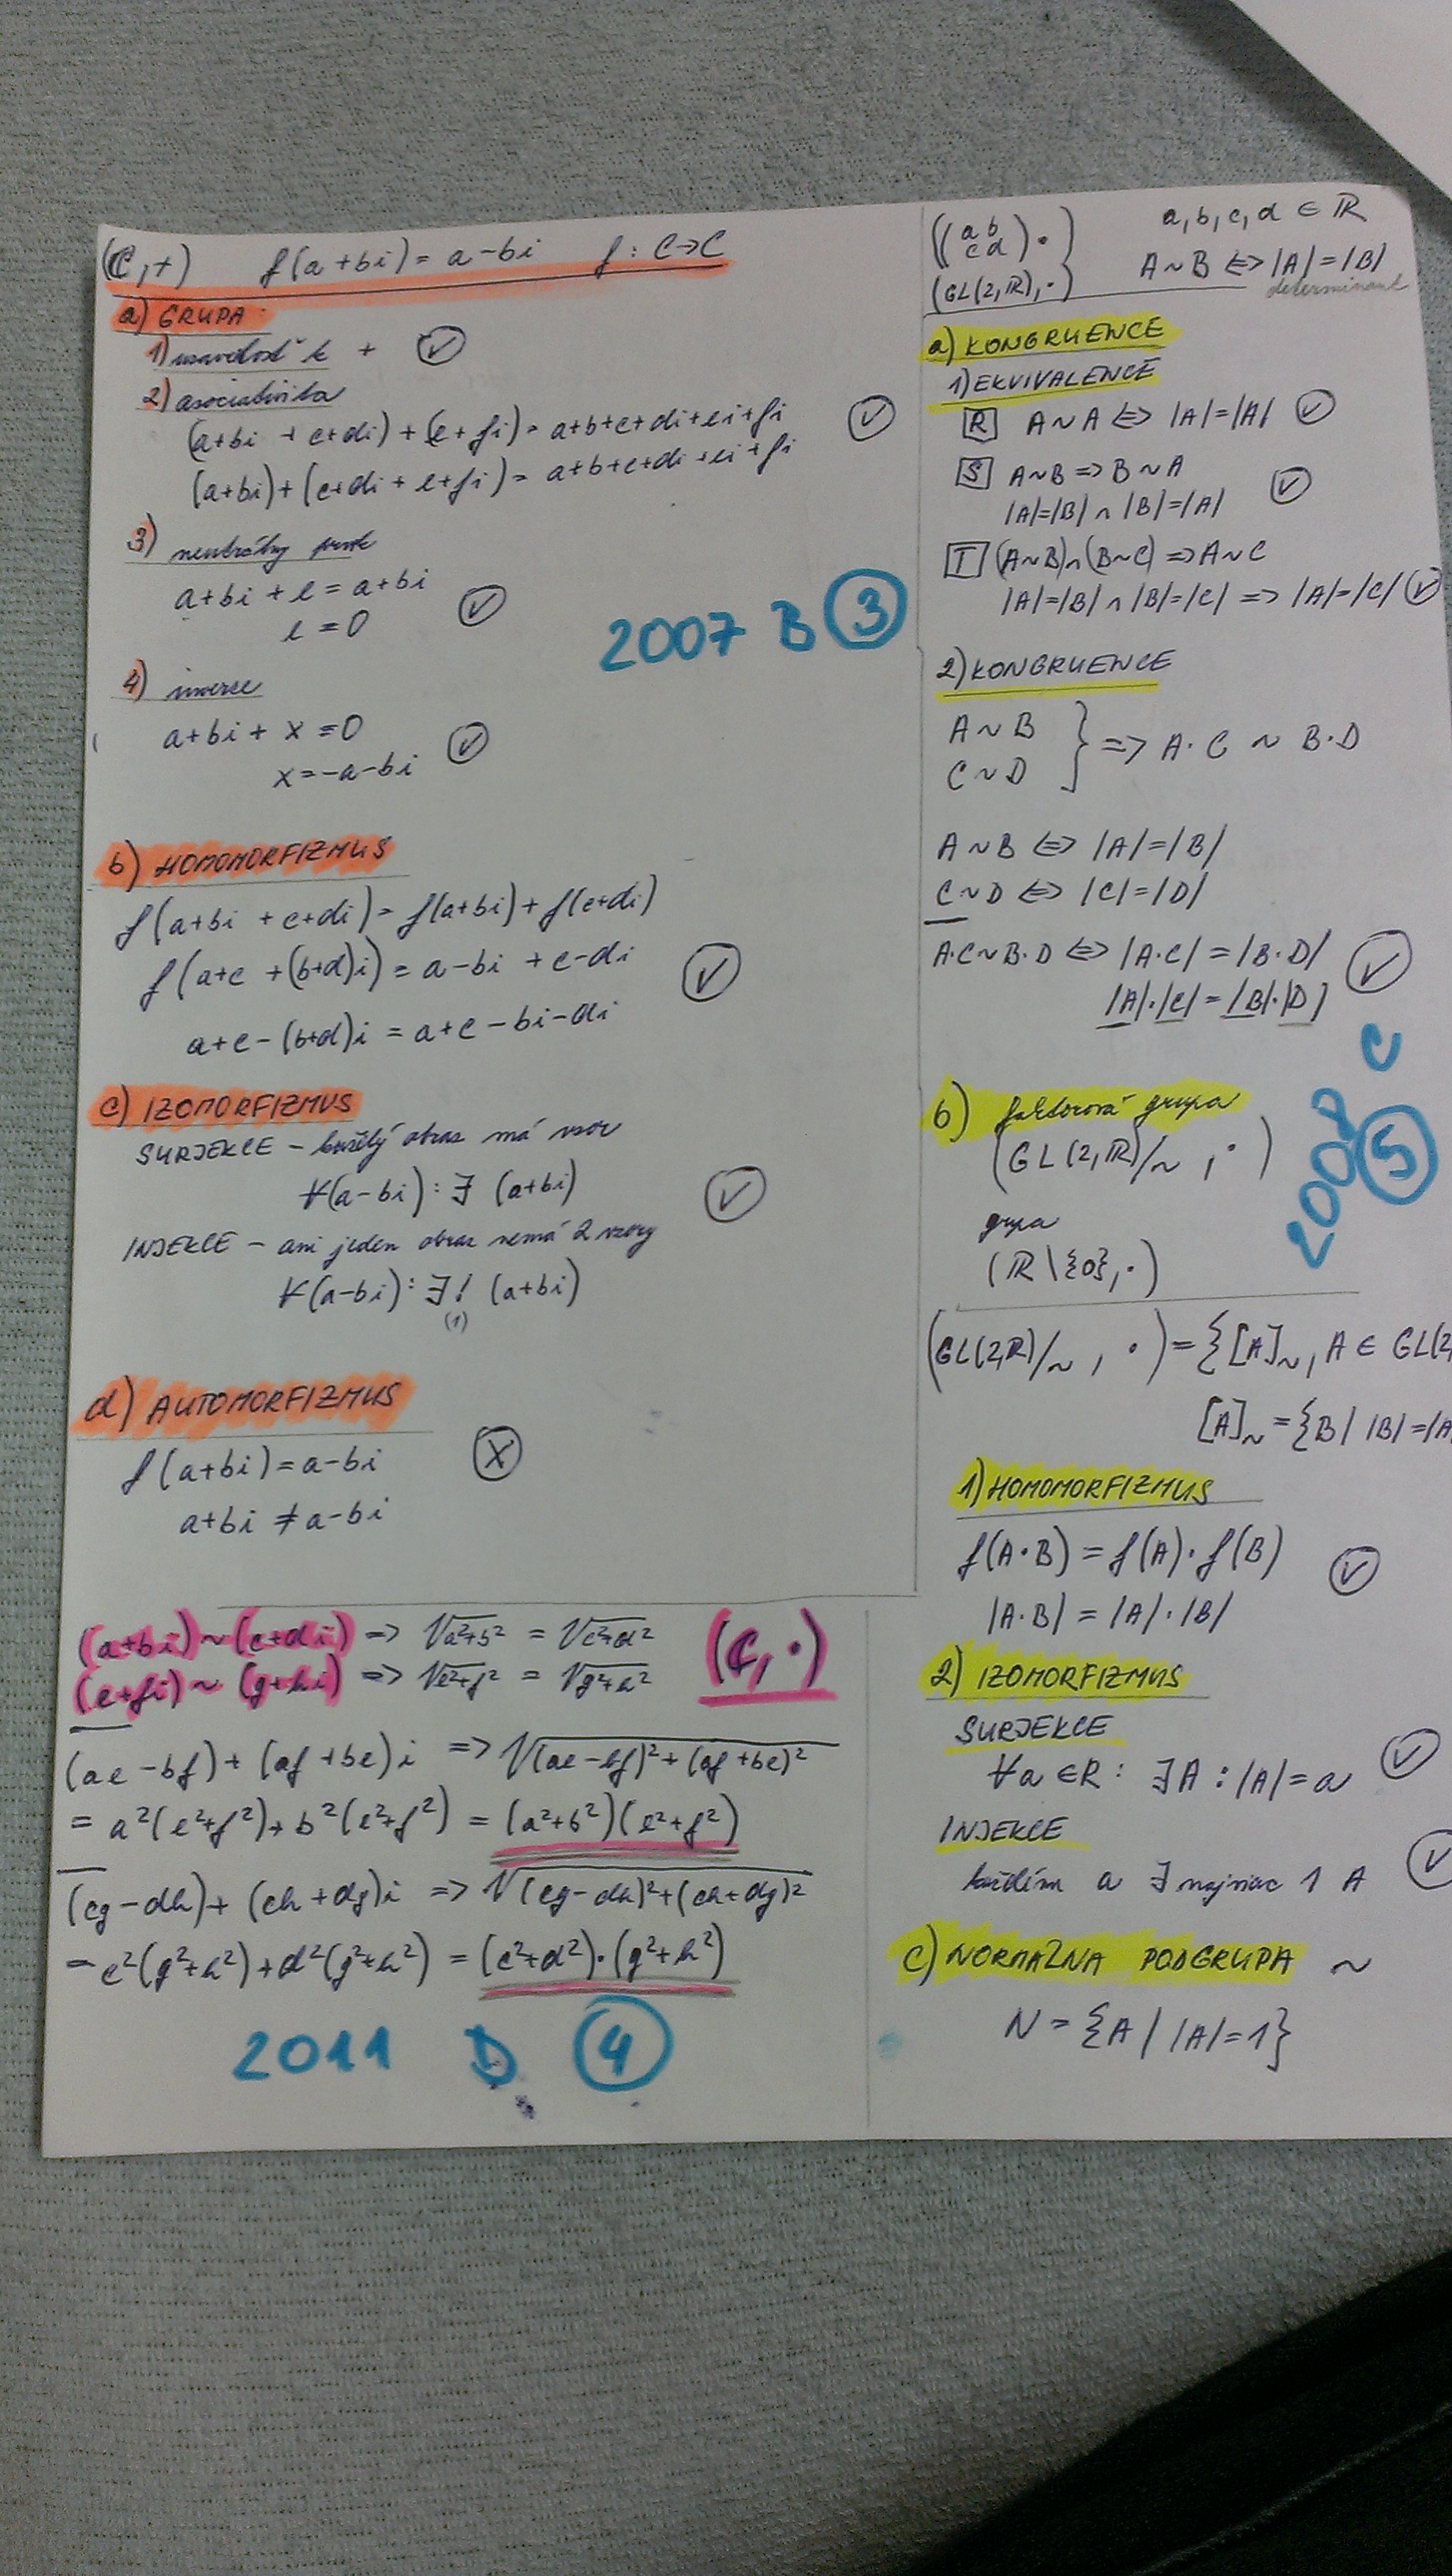 (ℂ,+) f(a+bi) = a-bi f: C→C
a) GRUPA
1) uzavdosť k +
2) asociativita
(a+bi + c+di) + (e+fi) = a+b+c+di+ei+fi
(a+bi)+(c+di + e+fi) = a+b+c+di+ei+fi
3) neutrálny prvok
a+bi + e = a+bi
e = 0
4) inverze
a+bi + x = 0
x = -a-bi
2007 B 3
b) HOMOMORFIZMUS
f(a+bi + c+di) = f(a+bi) + f(c+di)
f(a+c +(b+d)i) = a-bi + c-di
a+c-(b+d)i = a+c-bi-di
c) IZOMORFIZMUS
SURJEKCE - každý obraz má vzor
∀(a-bi): ∃ (a+bi)
INJEKCE - ani jeden obraz nemá 2 vzory
∀(a-bi): ∃! (a+bi)
(1)
d) AUTOMORFIZMUS
f(a+bi) = a-bi
a+bi ≠ a-bi
(a+bi)~(c+di) => √a²+b² = √c²+d²
(e+fi)~(g+hi) => √e²+f² = √g²+h²
(ℂ, ·)
(ae-bf)+(af+be)i => √(ae-bf)²+(af+be)²
= a²(e²+f²)+b²(e²+f²) = (a²+b²)(e²+f²)
(cg-dh)+(ch+dg)i => √(cg-dh)²+(ch+dg)²
= c²(g²+h²)+d²(g²+h²) = (c²+d²)·(g²+h²)
2011 D 4
((a b
c d) ·) a,b,c,d ∈ ℝ
(GL(2,ℝ),·) A~B <=> |A|=|B|
determinant
a) KONGRUENCE
1) EKVIVALENCE
R A~A <=> |A|=|A|
S A~B => B~A
|A|=|B| ∧ |B|=|A|
T (A~B)∧(B~C) => A~C
|A|=|B| ∧ |B|=|C| => |A|=|C|
2) KONGRUENCE
A~B
C~D } => A·C ~ B·D
A~B <=> |A|=|B|
C~D <=> |C|=|D|
A·C~B·D <=> |A·C| = |B·D|
|A|·|C| = |B|·|D|
2008 C 5
b) faktorová grupa
(GL(2,ℝ)/~ , ·)
grupa
(ℝ\{0},·)
(GL(2,ℝ)/~ , ·) = {[A]~, A ∈ GL(2,
[A]~ = {B| |B|=|A
1) HOMOMORFIZMUS
f(A·B) = f(A)·f(B)
|A·B| = |A|·|B|
2) IZOMORFIZMUS
SURJEKCE
∀a ∈ R: ∃A: |A|=a
INJEKCE
každému a ∃ najviac 1 A
c) NORMÁLNA PODGRUPA ~
N = {A| |A|=1}